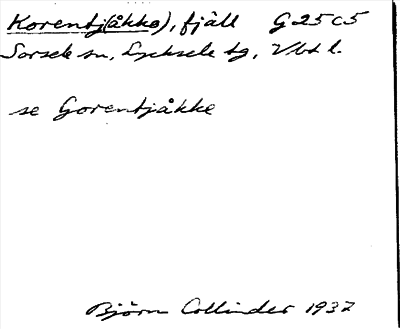 Korentj(åkke), fjäll G25c5
Sorsele sn, Lycksele tg, Vbd l.
se Gorentjåkke
Björn Collinder 1937